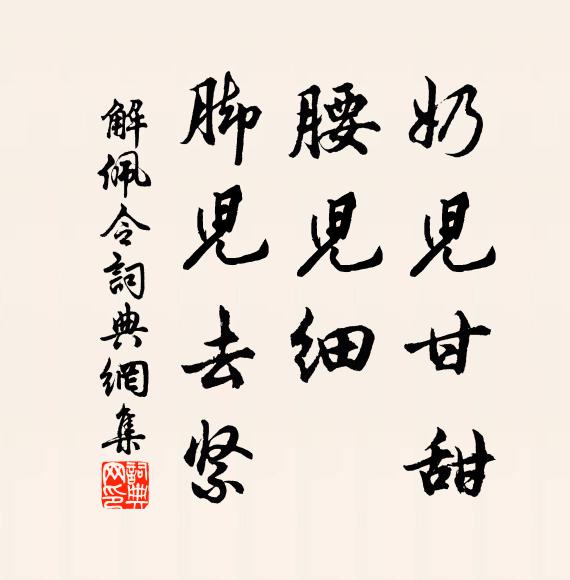 奶兒甘甜
腰兒細
脚兒去紧
解佩令詞典網集
詞典
网印